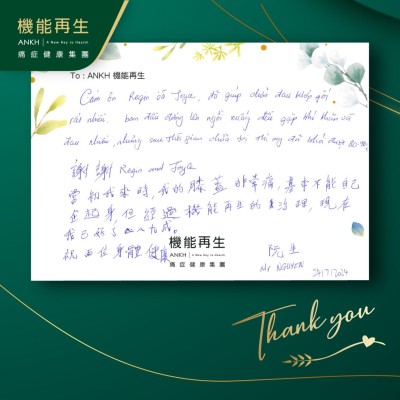 機能再生
ANKH | A New Key to Health
痛症健康集團
To : ANKH 機能再生
Cảm ơn Regin và Joyce, đã giúp chữa đau khớp gối
rất nhiều. ban đầu đứng lên ngồi xuống đều gặp khó khăn và
đau nhiều, nhưng sau thời gian chữa trị thì nay đã khỏi được 80-90%
謝謝 Regin and Joyce
當初我來時,我的膝蓋非常痛,基本不能自
企起身,但經過機能再生的治理,現在
我已好了八九成。
祝两位身體健康
機能再生
ANKH | A New Key to Health
痛症健康集團
阮生
Mr NGUYEN
24/7/2024
Thank you